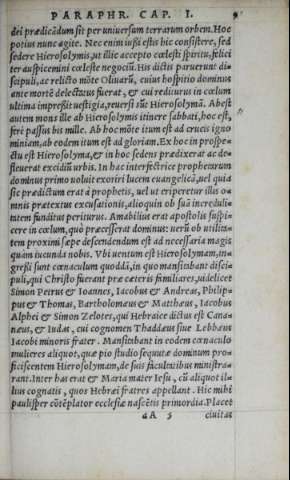 PARAPHR. CAP. I. 9
dei prædicãdum sit per uniuersum terrarum orbem. Hoc
potius nunc agite. Nec enim iußi estis hic consistere, sed
sedere Hierosolymis, ut illic accepto cœlesti spiritu, felici
ter auspicemini cœleste negociũ. His dictis paruerunt di-
scipuli, ac relicto mõte Oliuarũ, cuius hospitio dominus
ante mortẽ delectatus fuerat, & cui rediturus in cœlum
ultima impreßit uestigia, reuersi sũt Hierosolymã. Abest
autem mons ille ab Hierosolymis itinere sabbati, hoc est,
ferè passus bis mille. Ab hoc mõte itum est ad crucis igno
miniam, ab eodem itum est ad gloriam. Ex hoc in prospe-
ctu est Hierosolyma, & in hoc sedens prædixerat ac de-
fleuerat excidiũ urbis. In hac interfectrice prophetarum
dominus primo uoluit exoriri lucem euangelicã, uel quia
sic prædictum erat à prophetis, uel ut eriperetur illis o-
mnis prætextus excusationis, alioquin ob suã increduli-
tatem funditus periturus. Amabilius erat apostolis suspi-
cere in cœlum, quò præcesserat dominus: uerũ ob utilita-
tem proximi sæpe descendendum est ad necessaria magis
quàm iucunda nobis. Vbi uentum est Hierosolymam, in-
greßi sunt cœnaculum quoddã, in quo mansitabant disci-
puli, qui Christo fuerant præ cæteris familiares, uidelicet
Simon Petrus & Ioannes, Iacobus & Andreas, Philip-
pus & Thomas, Bartholomæus & Matthæus, Iacobus
Alphei & Simon Zelotes, qui Hebraice dictus est Cana-
næus, & Iudas, cui cognomen Thaddæus siue Lebbæus
Iacobi minoris frater. Mansitabant in eodem cœnaculo
mulieres aliquot, quæ pio studio sequutæ dominum pro-
ficiscentem Hierosolymam, de suis facultatibus ministra-
rant. Inter has erat & Maria mater Iesu, cũ aliquot il-
lius cognatis, quos Hebræi fratres appellant. Hic mihi
paulisper cõtẽplator ecclesiæ nascẽtis primordia. Placet
aA 5 ciuitas